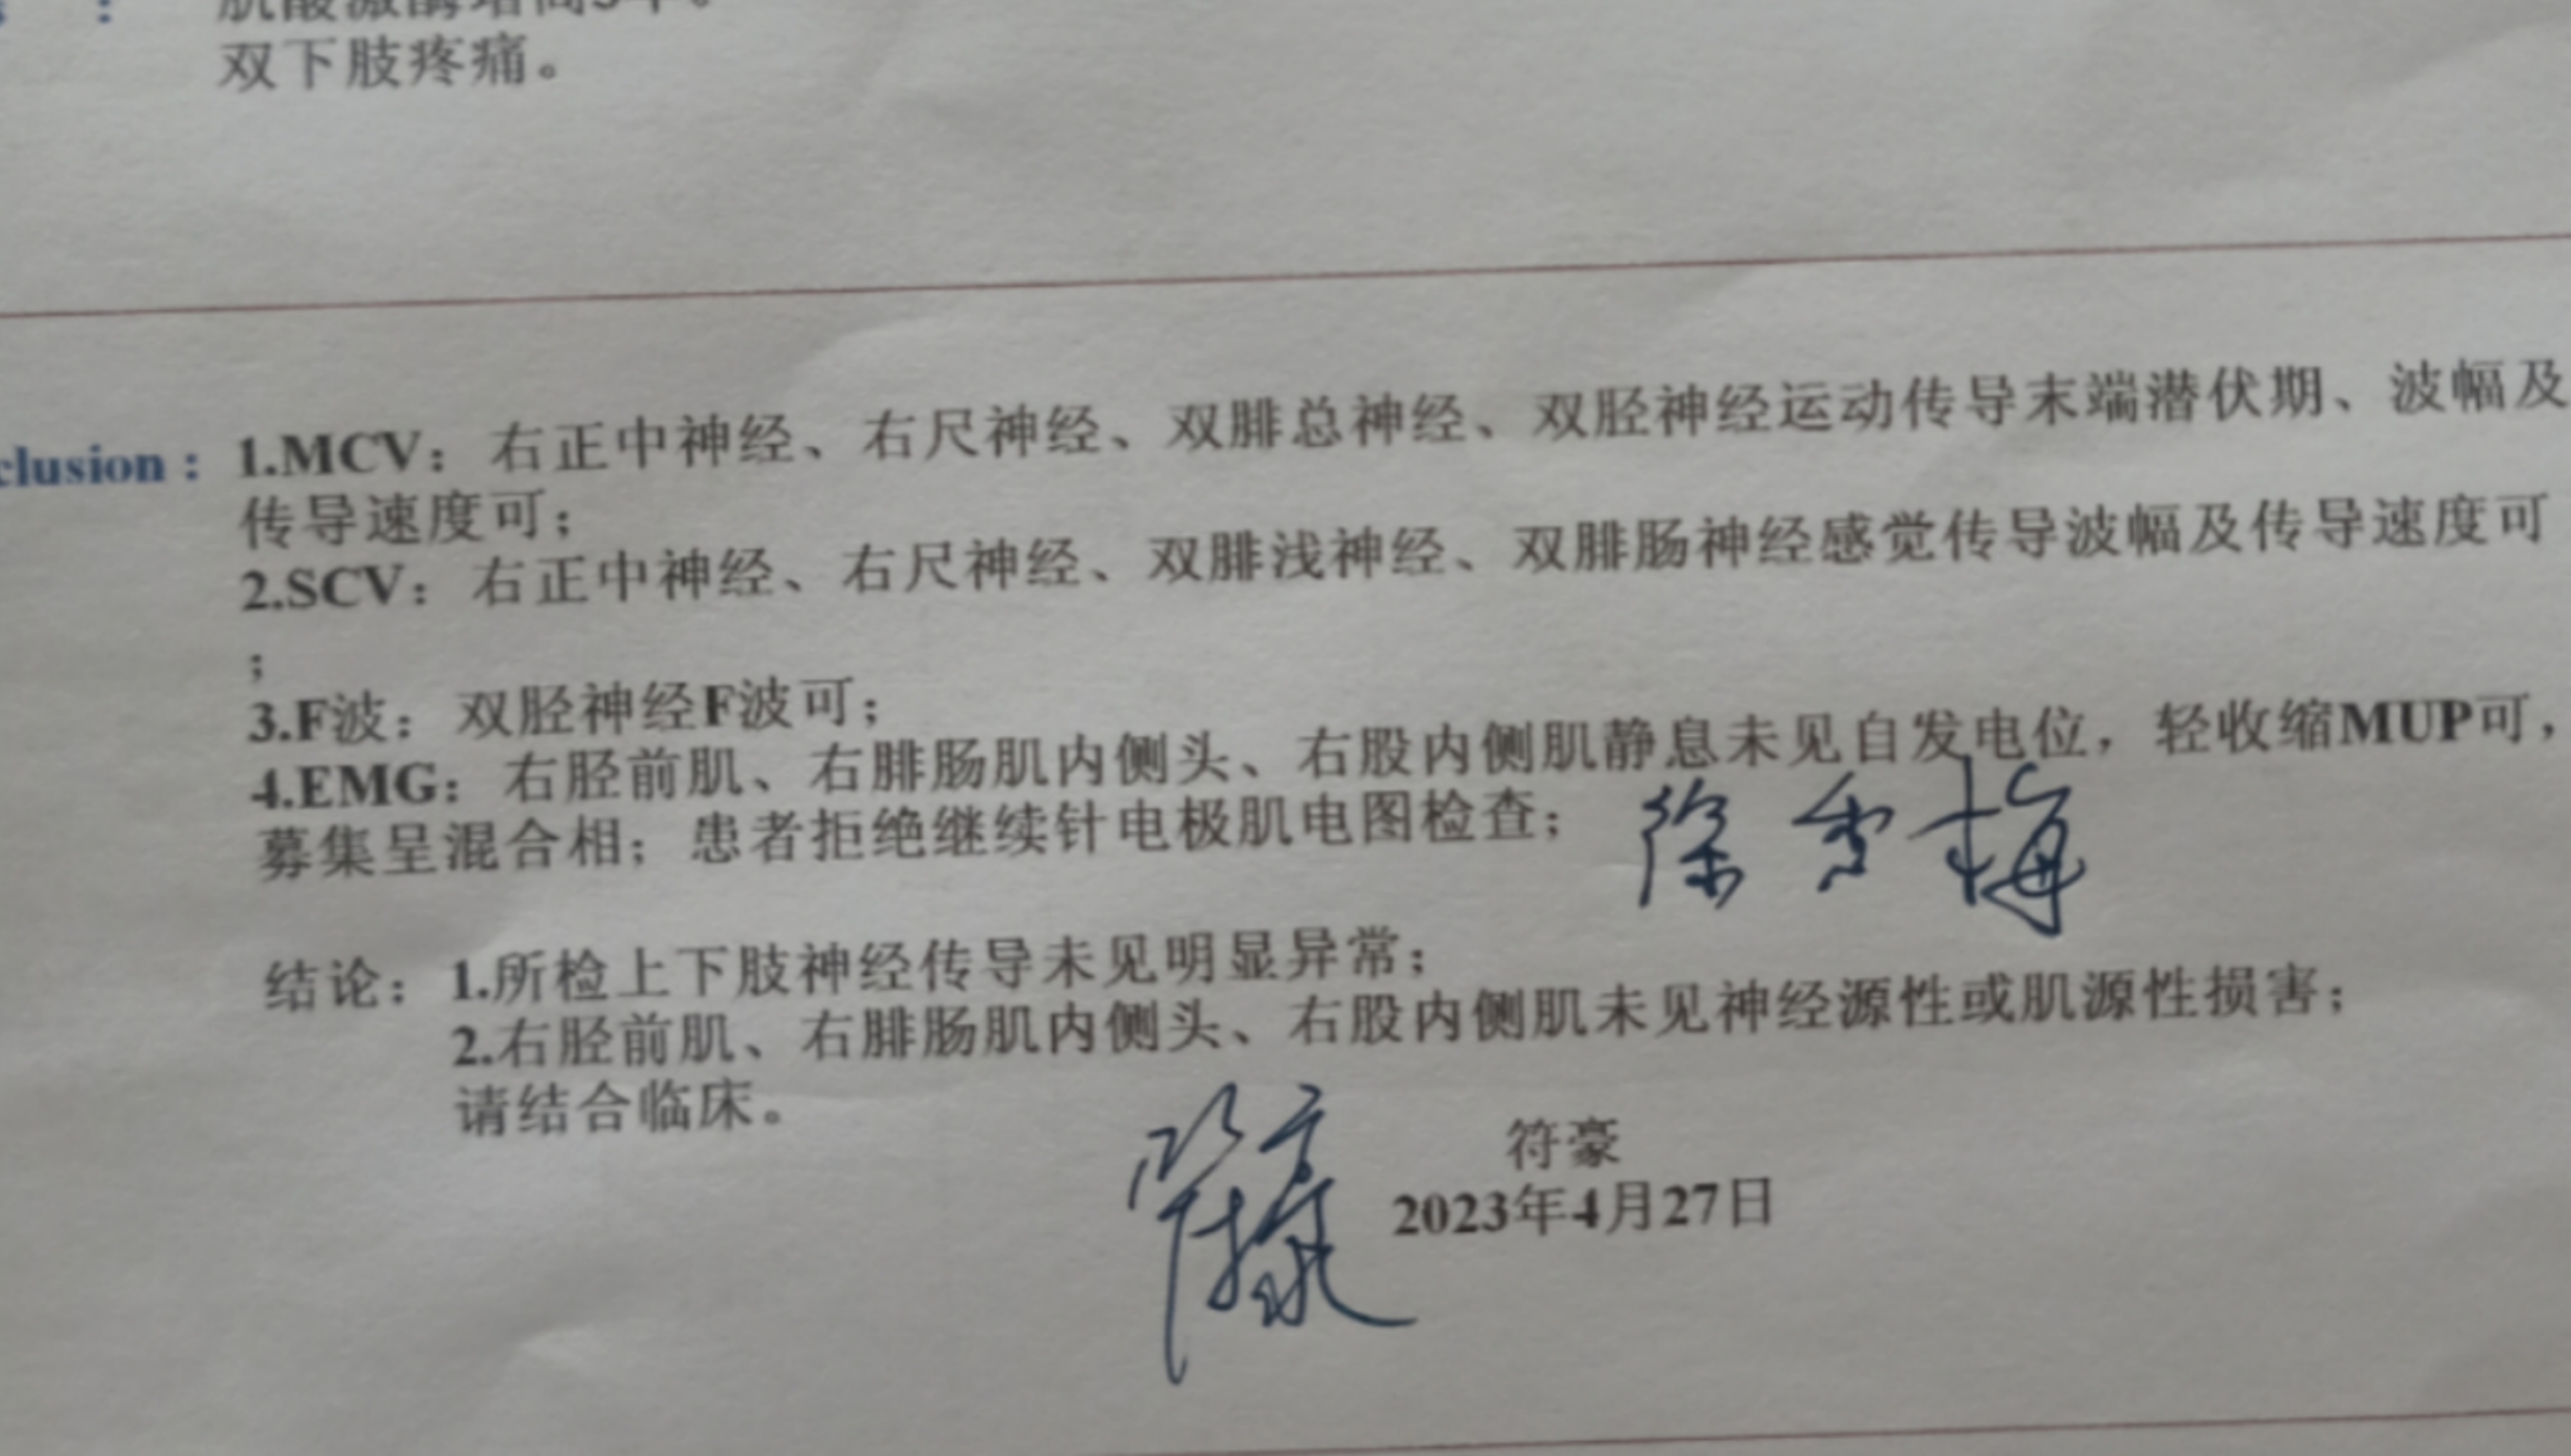 肌酸激酶增高3年。
双下肢疼痛。
clusion：1.MCV：右正中神经、右尺神经、双腓总神经、双胫神经运动传导末端潜伏期、波幅及
传导速度可；
2.SCV：右正中神经、右尺神经、双腓浅神经、双腓肠神经感觉传导波幅及传导速度可
；
3.F波：双胫神经F波可；
4.EMG：右胫前肌、右腓肠肌内侧头、右股内侧肌静息未见自发电位，轻收缩MUP可，
募集呈混合相；患者拒绝继续针电极肌电图检查；
结论：1.所检上下肢神经传导未见明显异常；
2.右胫前肌、右腓肠肌内侧头、右股内侧肌未见神经源性或肌源性损害；
请结合临床。
符豪
2023年4月27日